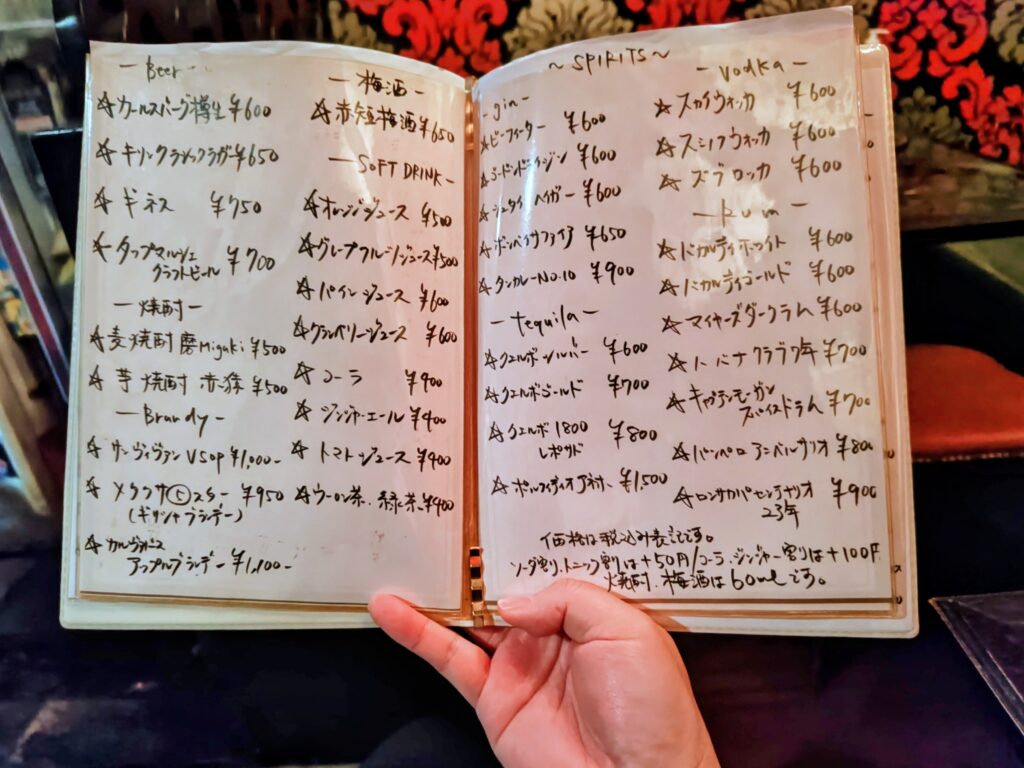 - Beer -
☆カールスバーグ樽生 ¥600
☆キリンクラシックラガー ¥650
☆ギネス ¥750
☆タップマルシェ
クラフトビール ¥700
- 焼酎 -
☆麦焼酎 磨Migaki ¥500
☆芋焼酎 赤猿 ¥500
- Brandy -
☆サンヴィヴァン VSOP ¥1,000-
☆メタクサ⑤スター ¥950
(ギリシャブランデー)
☆カルヴァドス
アップルブランデー ¥1,100-
- 梅酒 -
☆赤短梅酒 ¥650
- SOFT DRINK -
☆オレンジジュース ¥500
☆グレープフルーツジュース ¥500
☆パインジュース ¥600
☆クランベリージュース ¥600
☆コーラ ¥400
☆ジンジャーエール ¥400
☆トマトジュース ¥400
☆ウーロン茶、緑茶 ¥400
~ SPIRITS ~
- gin -
☆ビーフィーター ¥600
☆ゴードンドライジン ¥600
☆シュタインヘイガー ¥600
☆ボンベイサファイア ¥650
☆タンカレーNo.10 ¥900
- tequila -
☆クエルボシルバー ¥600
☆クエルボゴールド ¥700
☆クエルボ 1800
レポサド ¥800
☆ポルフィディオ ¥1,500
- Vodka -
☆スカイウォッカ ¥600
☆スミノフウォッカ ¥600
☆ズブロッカ ¥600
- Rum -
☆バカルディホワイト ¥600
☆バカルディゴールド ¥600
☆マイヤーズダークラム ¥600
☆ハバナクラブ7年 ¥700
☆キャプテンモーガン
スパイスドラム ¥700
☆パンペロアニバルサリオ ¥800
☆ロンサカパセンテナリオ
23年 ¥900
価格は税込み表記です。
ソーダ割り、トニック割は+50円/コーラ、ジンジャー割りは+100円
焼酎、梅酒は60mlです。